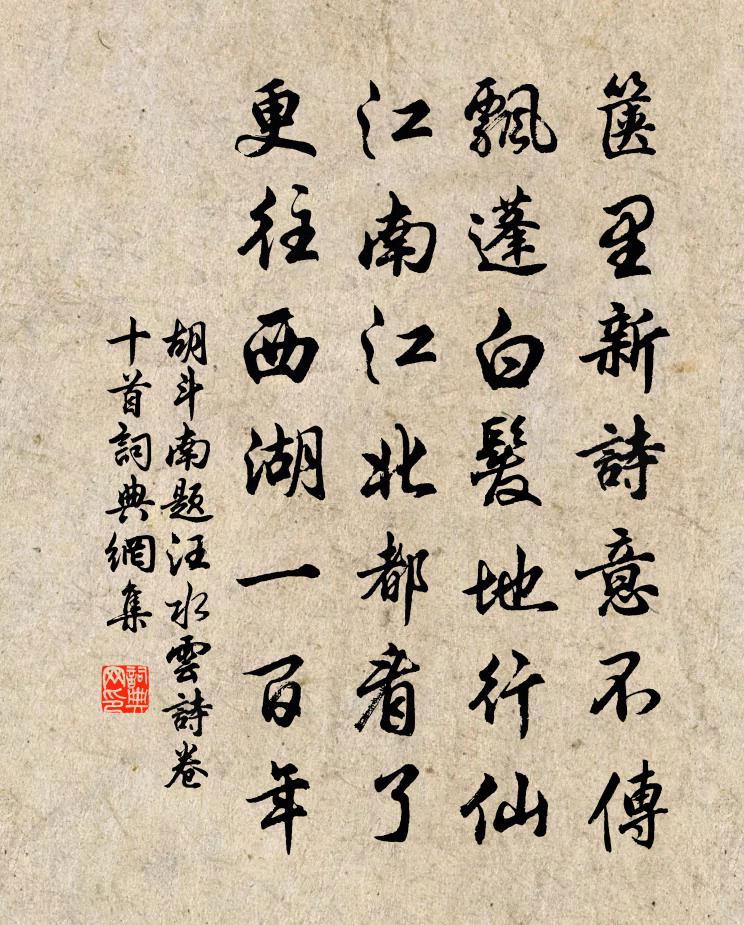 篋里新詩意不傳
飄蓬白髮地行仙
江南江北都看了
更往西湖一百年
胡斗南题汪水雲詩卷
十首詞典網集
詞典网印